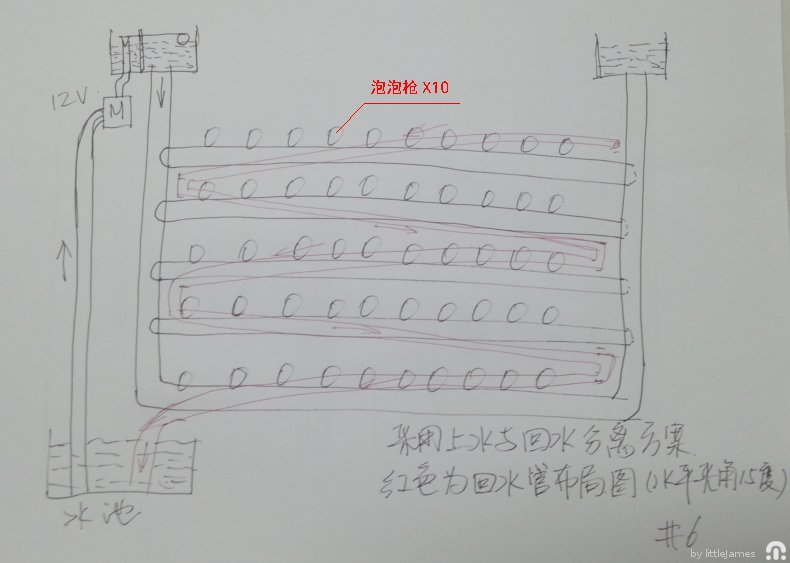 泡泡枪 X10
12V
M
水池
采用上水与回水分离方案
红色为回水管布局图(水平夹角15度)
#6
by littleJames